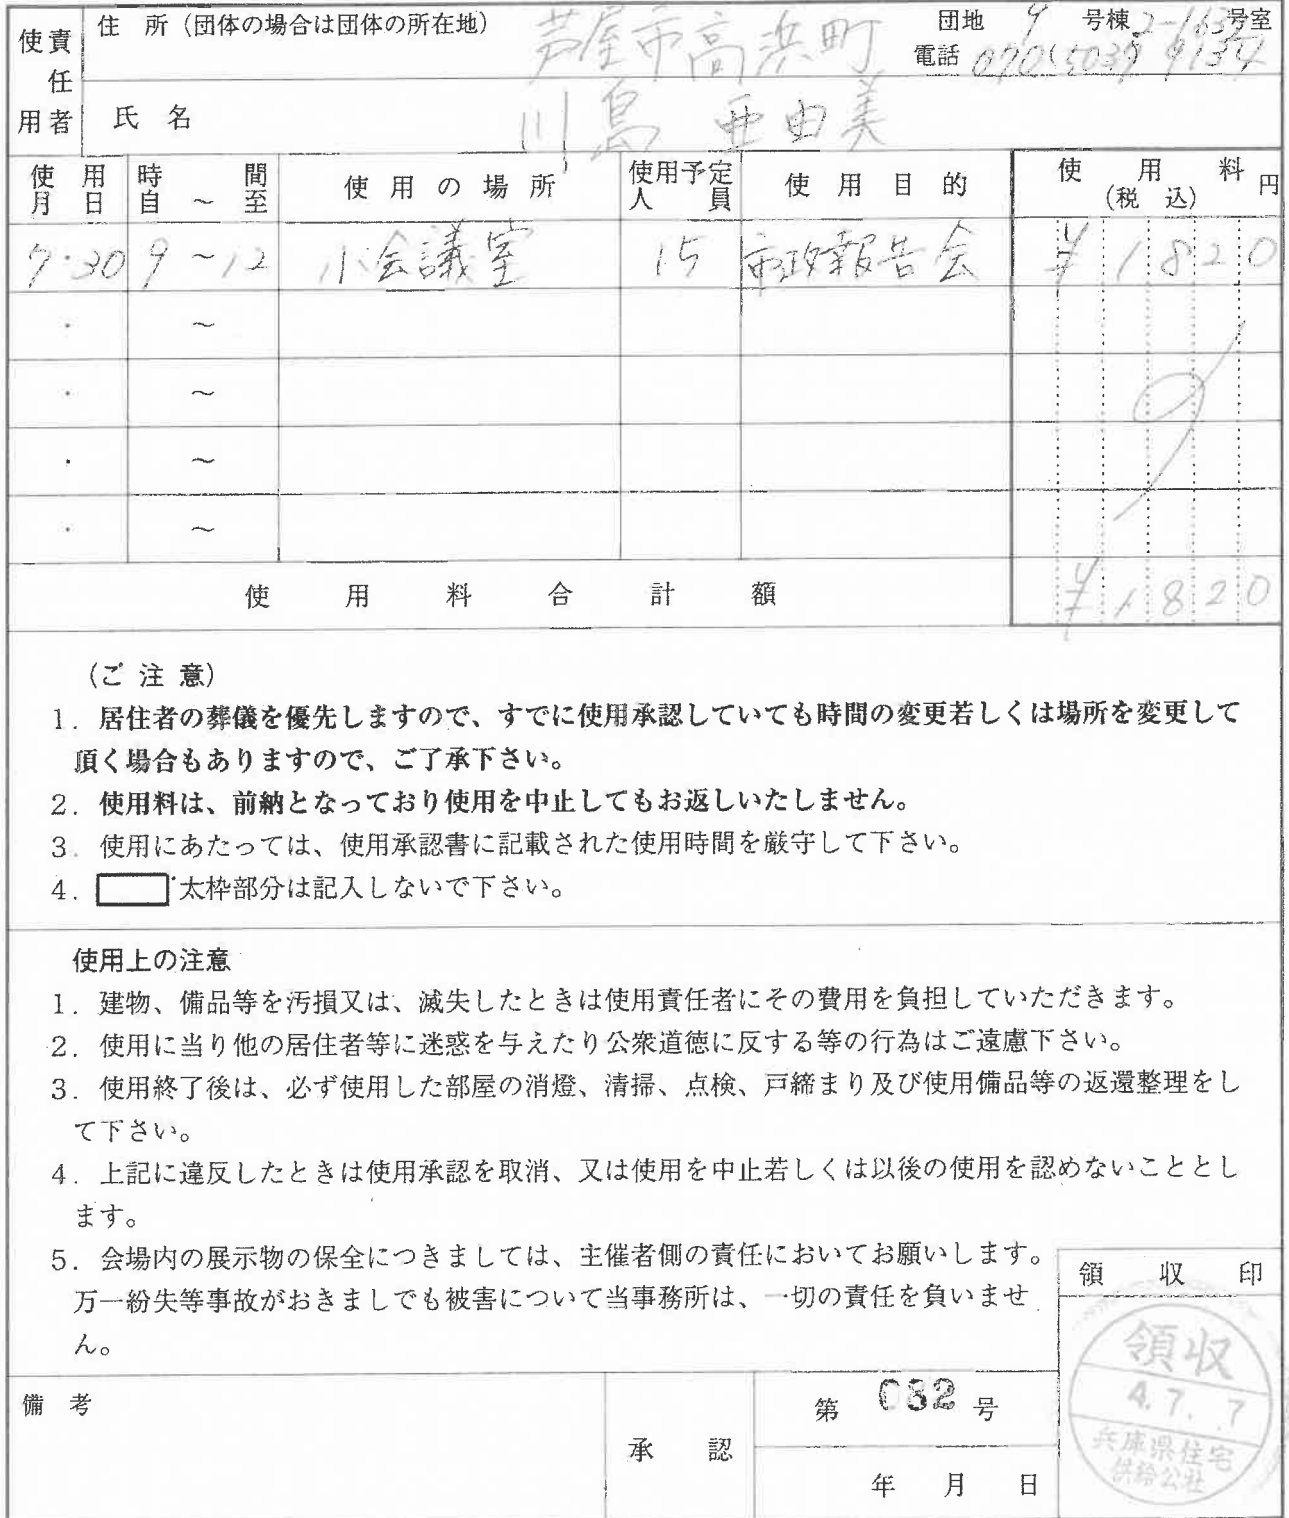 使用責任者
住 所 (団体の場合は団体の所在地) 芦屋市高浜町 団地 9 号棟 2-163号室
電話 070(5039)9134
氏 名 川島 亜由美
使用月日 時間自~至 使用の場所 使用予定人員 使用目的 使用料(税込)円
7・30 9~12 小会議室 15 市政報告会 ¥1820
・ ~
・ ~
・ ~
・ ~
使用料合計額 ¥1820
(ご注意)
1. 居住者の葬儀を優先しますので、すでに使用承認していても時間の変更若しくは場所を変更して
頂く場合もありますので、ご了承下さい。
2. 使用料は、前納となっており使用を中止してもお返しいたしません。
3. 使用にあたっては、使用承認書に記載された使用時間を厳守して下さい。
4. 太枠部分は記入しないで下さい。
使用上の注意
1. 建物、備品等を汚損又は、滅失したときは使用責任者にその費用を負担していただきます。
2. 使用に当り他の居住者等に迷惑を与えたり公衆道徳に反する等の行為はご遠慮下さい。
3. 使用終了後は、必ず使用した部屋の消燈、清掃、点検、戸締まり及び使用備品等の返還整理をし
て下さい。
4. 上記に違反したときは使用承認を取消、又は使用を中止若しくは以後の使用を認めないこととし
ます。
5. 会場内の展示物の保全につきましては、主催者側の責任においてお願いします。
万一紛失等事故がおきましでも被害について当事務所は、一切の責任を負いませ
ん。
領 収 印
領収
4.7.7
兵庫県住宅
供給公社
備 考
承 認
第 082 号
年 月 日